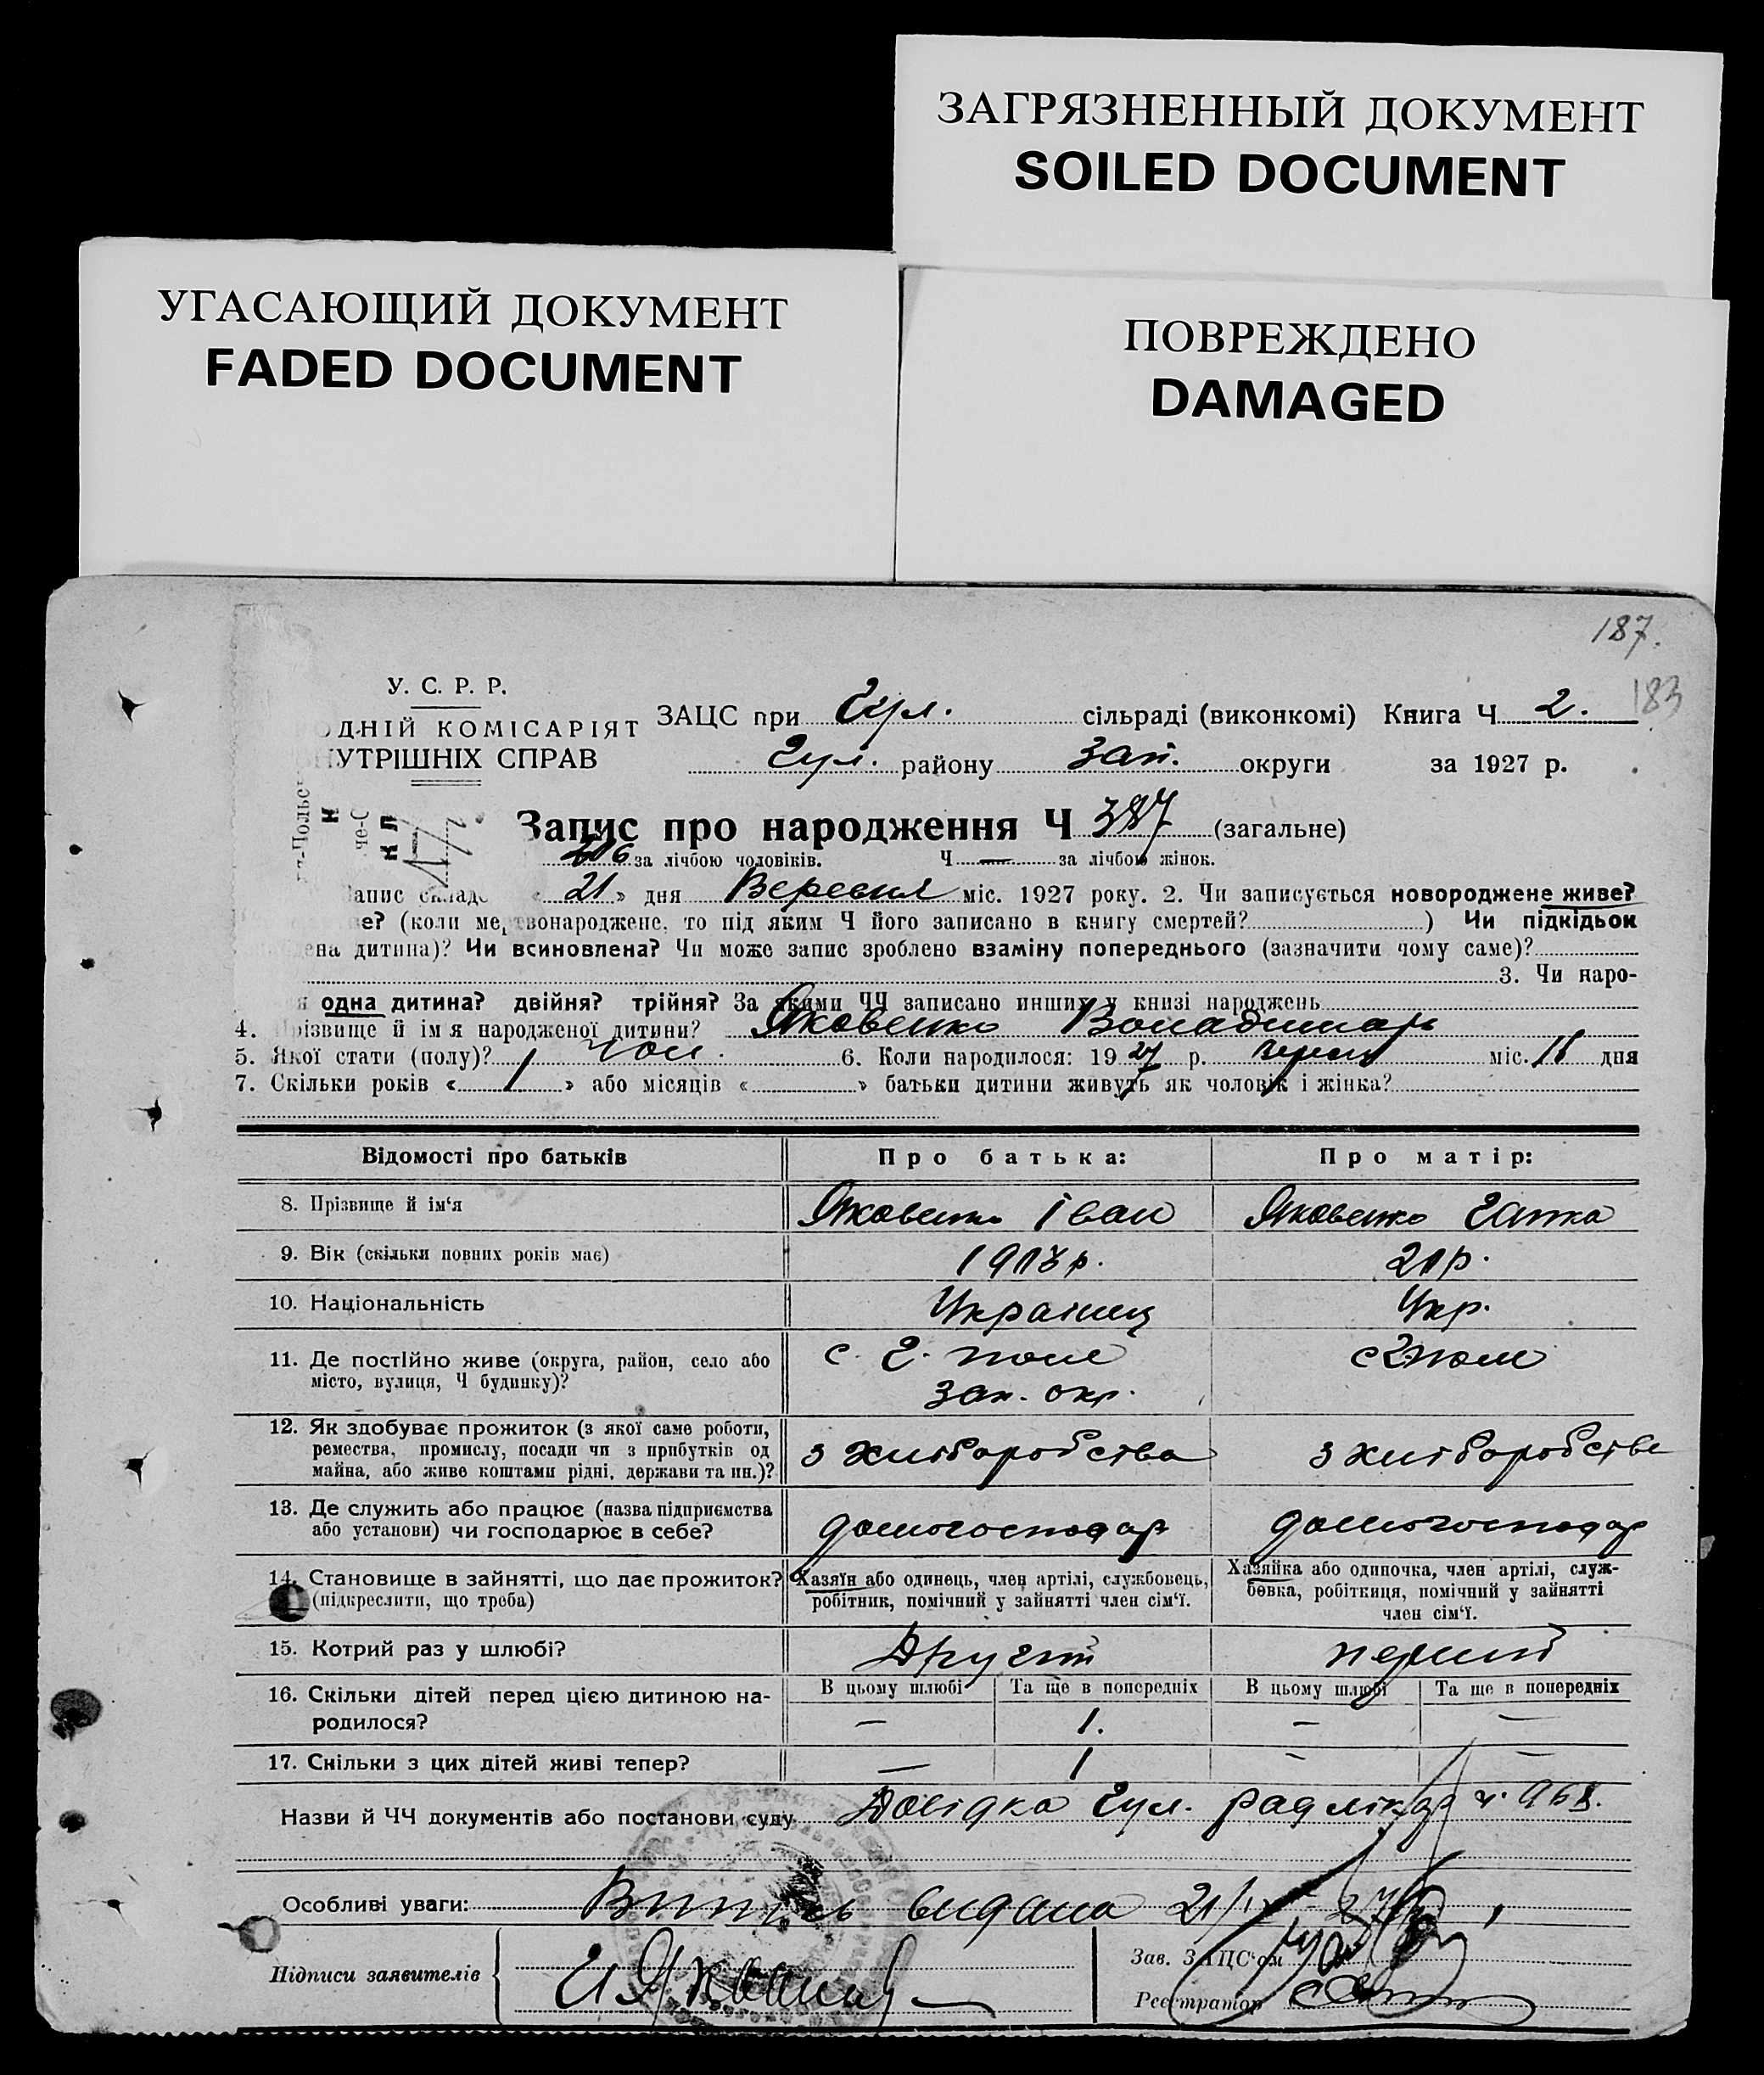 ЗАГРЯЗНЕННЫЙ ДОКУМЕНТ
SOILED DOCUMENT
УГАСАЮЩИЙ ДОКУМЕНТ
FADED DOCUMENT
ПОВРЕЖДЕНО
DAMAGED
187.
183
У. С. Р. Р.
ОДНІЙ КОМІСАРІЯТ
УТРІШНІХ СПРАВ
ЗАЦС при Гул. сільраді (виконкомі) Книга Ч 2.
Гул. району Зап. округи за 1927 р.
Запис про народження Ч 387 (загальне)
206 за лічбою чоловіків. Ч — за лічбою жінок.
апис складе « 21 » дня Вересня міс. 1927 року. 2. Чи записується новороджене живе?
ве? (коли мертвонароджене, то під яким Ч його записано в книгу смертей? ) Чи підкідьок
ена дитина)? Чи всиновлена? Чи може запис зроблено взаміну попереднього (зазначити чому саме)?
3. Чи наро-
одна дитина? двійня? трійня? За якими ЧЧ записано инших у книзі народжень
4. Прізвище й ім я народженої дитини? Яковенко Воладимарь
5. Якої стати (полу)? чол. 6. Коли народилося: 19 27 р. Вересн міс. 18 дня
7. Скільки років « 1 » або місяців « » батьки дитини живуть як чоловік і жінка?
Відомості про батьків Про батька: Про матір:
8. Прізвище й ім'я Яковенко Іван Яковенко Гапка
9. Вік (скільки повних років має) 1903 р. 21 р.
10. Національність Українець Укр.
11. Де постійно живе (округа, район, село або місто, вулиця, Ч будинку)? с. Г. поле с Г. поле
Зап. окр.
12. Як здобуває прожиток (з якої саме роботи,
ремества, промислу, посади чи з прибутків од
майна, або живе коштами рідні, держави та ин.)? з хліборобства з хліборобства
13. Де служить або працює (назва підприємства
або установи) чи господарює в себе? домогосподар домогосподар
14. Становище в зайнятті, що дає прожиток? Хазяїн або одинець, член артілі, службовець, Хазяйка або одиночка, член артілі, служ-
(підкреслити, що треба) робітник, помічний у зайнятті член сім'ї. бовка, робітниця, помічний у зайнятті
член сім'ї.
15. Котрий раз у шлюбі? Другий перший
16. Скільки дітей перед цією дитиною на- В цьому шлюбі Та ще в попередніх В цьому шлюбі Та ще в попередніх
родилося? — 1. — —
17. Скільки з цих дітей живі тепер? — 1 — —
Назви й ЧЧ документів або постанови суду Довідка Гул. рад лікар ч. 968.
Особливі уваги: Випись видана 21/IX - 27
Підписи заявителів И Яковенко
Зав. ЗАЦС'ом
Реєстратор